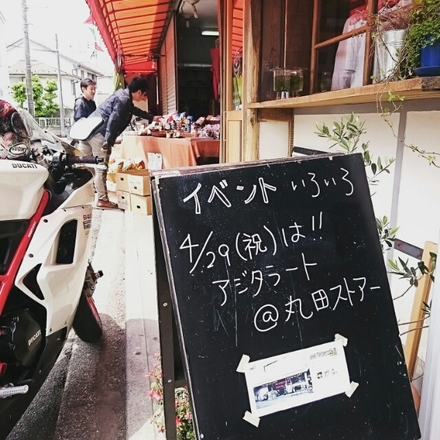 イベント いろいろ
4/29(祝)は!!
アジタラート
@丸田ストアー
DUCATI